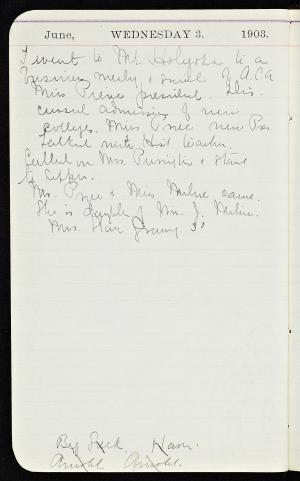 June, WEDNESDAY 3. 1903.
I went to Mt. Holyoke to a
business meetg & social of A.C.A
Miss Peirce president. Dis-
cussed admission of new
colleges. Miss new Pres.
talked with Hist teacher.
Called on Mrs. Purington & Stark
to supper.
Mr. & Miss Milne came.
She is daughter of Wm. J. Milne.
Mrs. Starr 30
Arnold Arnold.